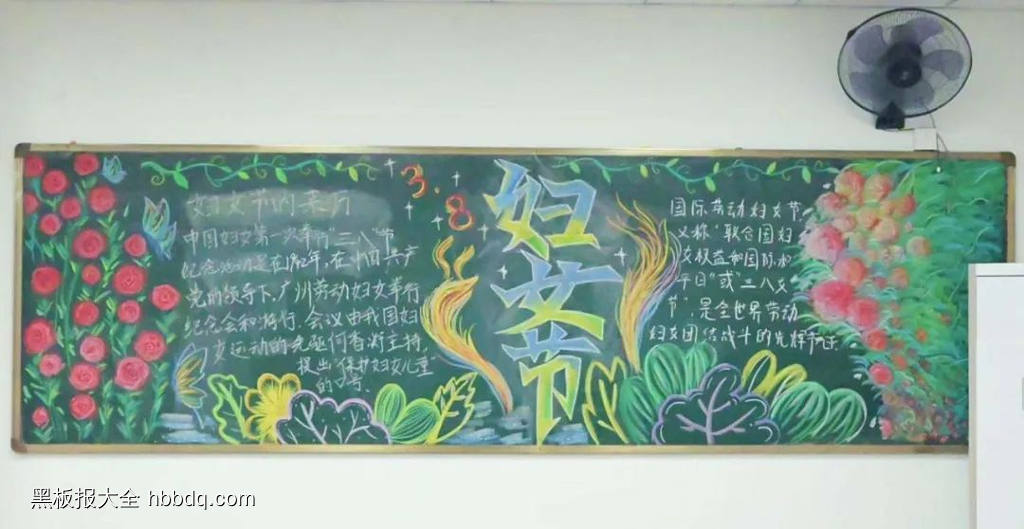 妇女节的来历
中国妇女第一次举行"三八"节
纪念活动是在1924年,在中国共产
党的领导下,广州劳动妇女举行
纪念会和游行,会议由我国妇
女运动的先驱何香凝主持,
提出"保护妇女儿童"
的口号.
3.8
妇女节
国际劳动妇女节,
又称"联合国妇
女权益和国际和
平日"或"三八妇
节",是全世界劳动
妇女团结战斗的光辉节日.
黑板报大全 hbbdq.com